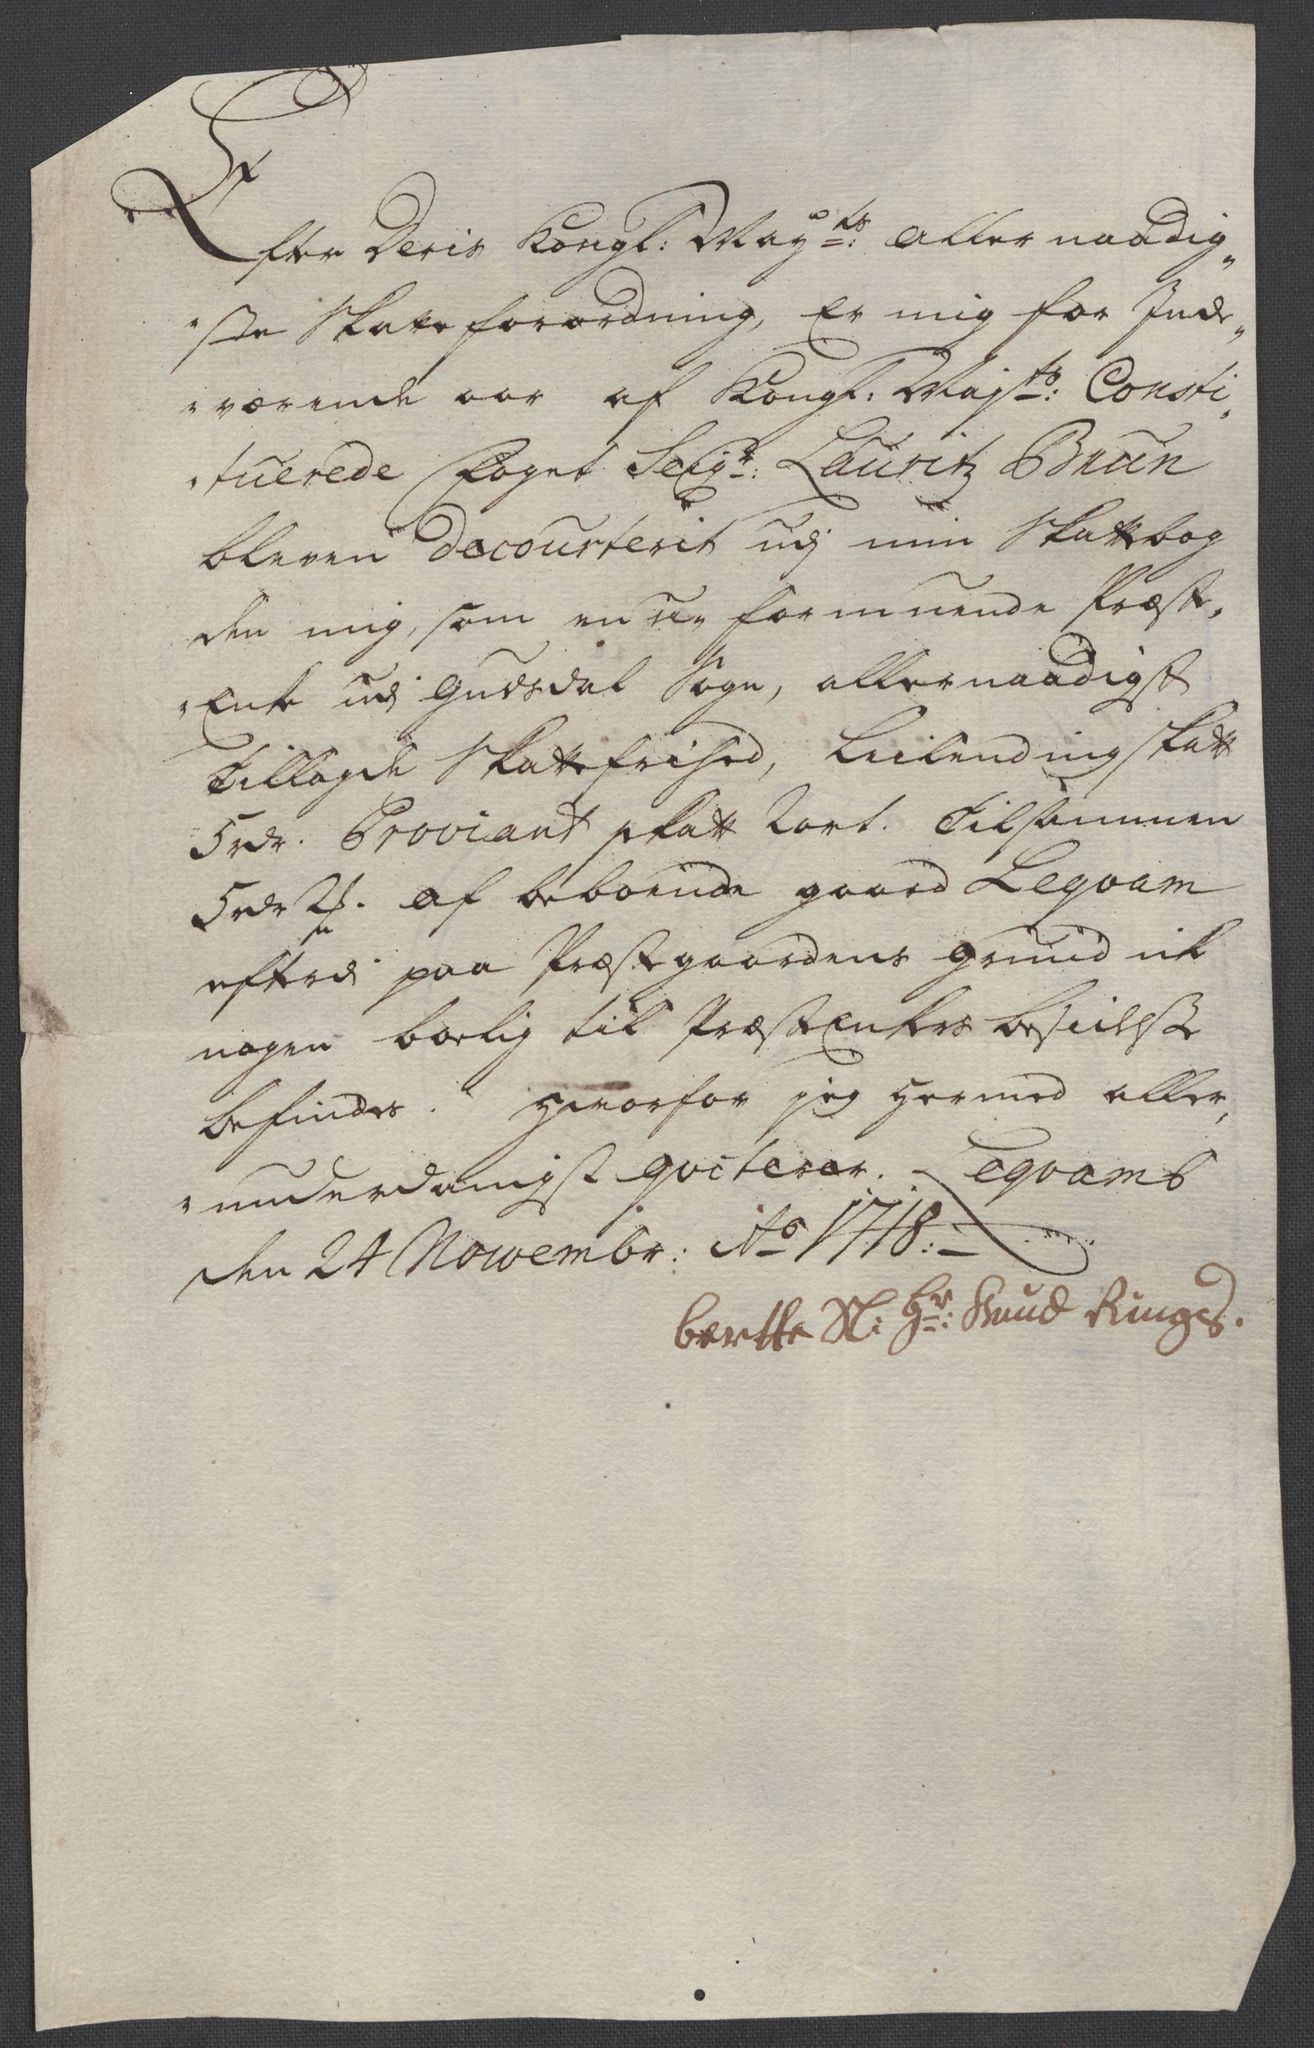 Efter Deris Kongl: May:ts: aller naadig„
„ste Skatteforordning, Er mig for Inde„
„værende aar af Kongl: Mayts: Consti„
„tuerede Foget Seigr: Lauritz Bruun
bleven decourterit udj min Skattebog
den mig, som en u„formuende Præste„
„Enke udj Gudsdal Sogn, allernaadigst
tillagde Skattefrihed, Leilendingskatt
5rdr. Proviant skatt 2ort. tilsammen
5rdr 2 af beboende gaard Leqvam
efterdj paa Præstegaardens grund ik
nogen boelig til PræstEnkers
befindes. Hvorfor jeg hermed aller„
„underdanigst qviterer. Leqvamb
den 24 Nowembr: Ao 1718:
berthe Sl: Hr: Knud Rings.